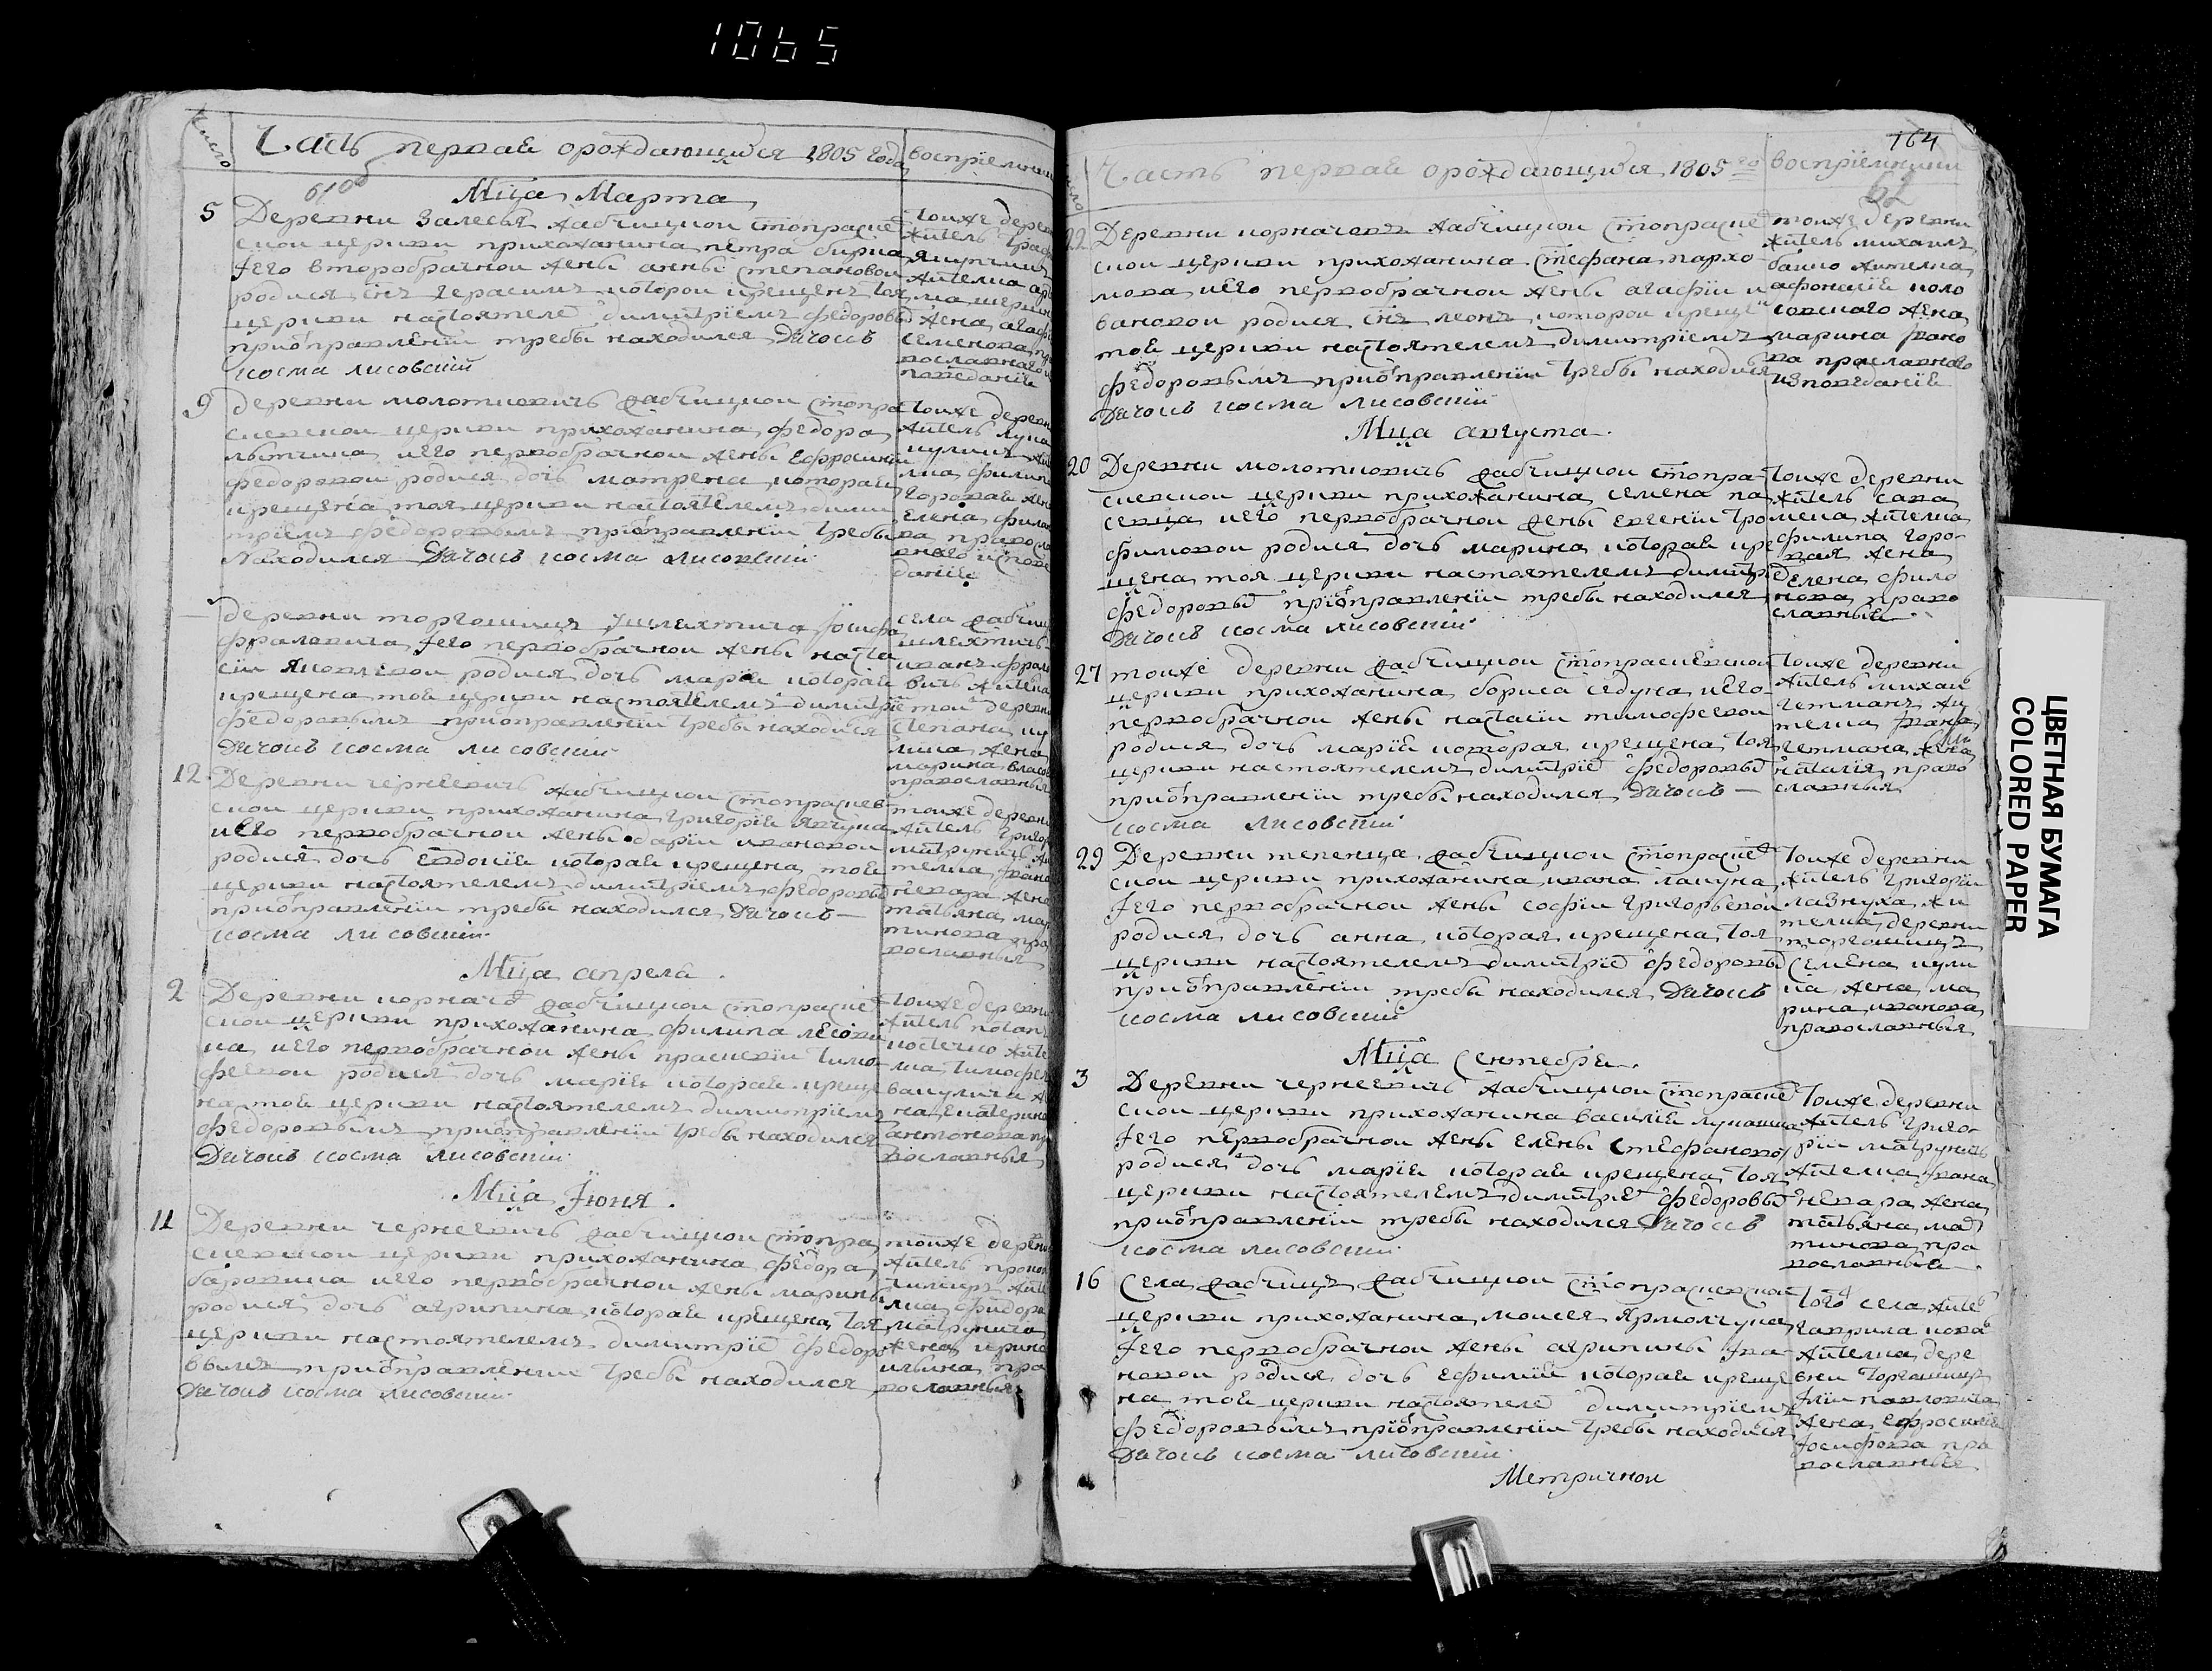 1065
число
Часть первая орождающихся 1805 года
восприемники
Мца Марта
5
Деревни Залесья Хабчицкои стопраске
скои церкви прихожанина петра
Iего второбрачнои жены анны степановои
родися снъ герасимъ которои крещенъ тоя
церкви настоятеле димитріемъ федоровы
приотправленіи требы находился Дячокъ
косма лисовскій
тояже дерев
житель
жителка
жена агафи
семенова
9
деревни молотковичъ хабчицкои стопра
скевскои церкви прихожанина федора
иего первобрачнои жены Ефросиніи
федоровои родися дочь матрена котораѧ
крещена тоя церкви настоятелемъ дими
тріемъ федоровымъ приотправленіи требы
Находился Дячокъ косма лисовскіи
тояже деревн
житель лука
Елена фило
ва правосла
внаго испове
даніѧ
деревни торгошицъ шляхтича Iосифа
фраловича Iего первобрачнои жены наста
сіи яковлевои родися дочь маріѧ котораѧ
крещена тоѧ церкви настоятелемъ димитріе
федоровымъ приотправленіи требы находился
Дячокъ косма лисовскіи
села хабчиц
шляхтичь
иванъ фрало
вичь жителка
тои деревни
степана ку
жена
марина власов
православныя
12
Деревни чернѣевичъ хабчицкои стопраскев
скои церкви прихожанина григоріѧ
иего первобрачнои жены даріи ивановои
родися дочь Евдокіѧ котораѧ крещена тоѧ
церкви настоятелемъ димитріемъ федоровы
приотправленіи требы находился Дячокъ
косма лисовскіи
тояже деревни
житель григор
матруничь жи
телка Iвана
невара жена
татьяна мар
тинова пра
вославныя
Мца апреля
2
Деревни корначо хабчицкои стопраске
скои церкви прихожанина филипа
иего первобрачнои жены праскевіи тимо
феевои родися дочь маріѧ котораѧ креще
на тоѧ церкви настоятелемъ димитріемъ
федоровымъ приотправленіи требы находился
Дячокъ косма лисовскіи
тояже деревни
житель потапъ
костечко жите
лка тимофея
вакулича же
на Екатерина
антонова пра
вославныя
Мца Iюня
11
Деревни чернеевичъ хабчицкои стопра
скевскои церкви прихожанина федора
баровика иего первобрачнои жены марины
родися дочь агрипина котораѧ крещена тоя
церкви настоятелемъ димитріе федоро
вымъ приотправленіи требы находился
Дячокъ косма лисовскіи
тояже деревн
житель прокоп
жите
лка фидора
матрунича
жена ирина
илькина пра
вославныя
164
62
число
Часть перваѧ орождающихся 1805 го
восприемники
22
Деревни корначовъ хабчицкои стопраске
скои церкви прихожанина стефана пархо
мова иего первобрачнои жены агафіи и
вановои родися снъ леонъ которои креще
тоѧ церкви настоятелемъ димитріемъ
федоровымъ приотправленіи требы находился
Дячокъ косма лисовскіи
тояже деревни
житель михаилъ
башко жителка
афонасіѧ коло
совскаго жена
марина Iвано
ва православно
исповеданіѧ
Мца августа
20
Деревни молотковичъ хабчицкои стопра
скевскои церкви прихожанина семена па
севца иего первобрачнои жены евгеніи тро
фимовои родися дочь марина котораѧ кре
щена тоя церкви настоятелемъ димитр
федоровы приотправленіи требы находился
Дячокъ косма лисовскіи
тояже деревни
житель сава
мелка жителка
филипа горо
вая жена
Елена фило
нова право
славныя
27
тояже деревни хабчицкои стопраскевскои
церкви прихожанина бориса седуна иего
первобрачнои жены настасіи тимофеевои
родися дочь маріѧ которая крещена тоя
церкви настоятелемъ димитріе федоровы
приотправленіи требы находился Дячокъ
косма лисовскіи
тояже деревни
житель михаи
гетманъ жи
телка Iвана
гетмана жена
наталія право
славныя
29
Деревни тепенца хабчицкои стопраске
скои церкви прихожанина ивана лацуна
Iего первобрачнои жены софіи григорьевои
родися дочь анна которая крещена тоя
церкви настоятелемъ димитріе федоровы
приотправленіи требы находился Дячокъ
косма лисовскіи
тояже деревни
житель григоріи
лазнуха жи
телка деревни
торгошицъ
семена кули
ка жена ма
рина иванова
православныя
Мца Сентебря
3
Деревни чернеевичъ хабчицкои стопраске
скои церкви прихожанина василіѧ лукашика
Iего первобрачнои жены Елены стефановои
родися дочь маріѧ котораѧ крещена тоя
церкви настоятелемъ димитріе федоровы
приотправленіи требы находился Дячокъ
косма лисовскіи
тояже деревни
житель григо
рій матруничь
жителка Iвана
невара жена
татьяна ма
тинова пра
вославныѧ
16
Села хабчицъ хабчицкои стопраскевскои
церкви прихожанина моисея ярмолчука
Iего первобрачнои жены агрипины Iва
новои родися дочь Ефиміѧ котораѧ креще
на тоѧ церкви настоятеле димитріемъ
федоровымъ приотправленіи требы находился
Дячокъ косма лисовскіи
того села жите
гаврила кова
жителка дере
вни торгошицъ
Iліи павловича
жена Ефросиніѧ
Iосифова пра
вославныя
Метричнои
ЦВЕТНАЯ БУМАГА
COLORED PAPER